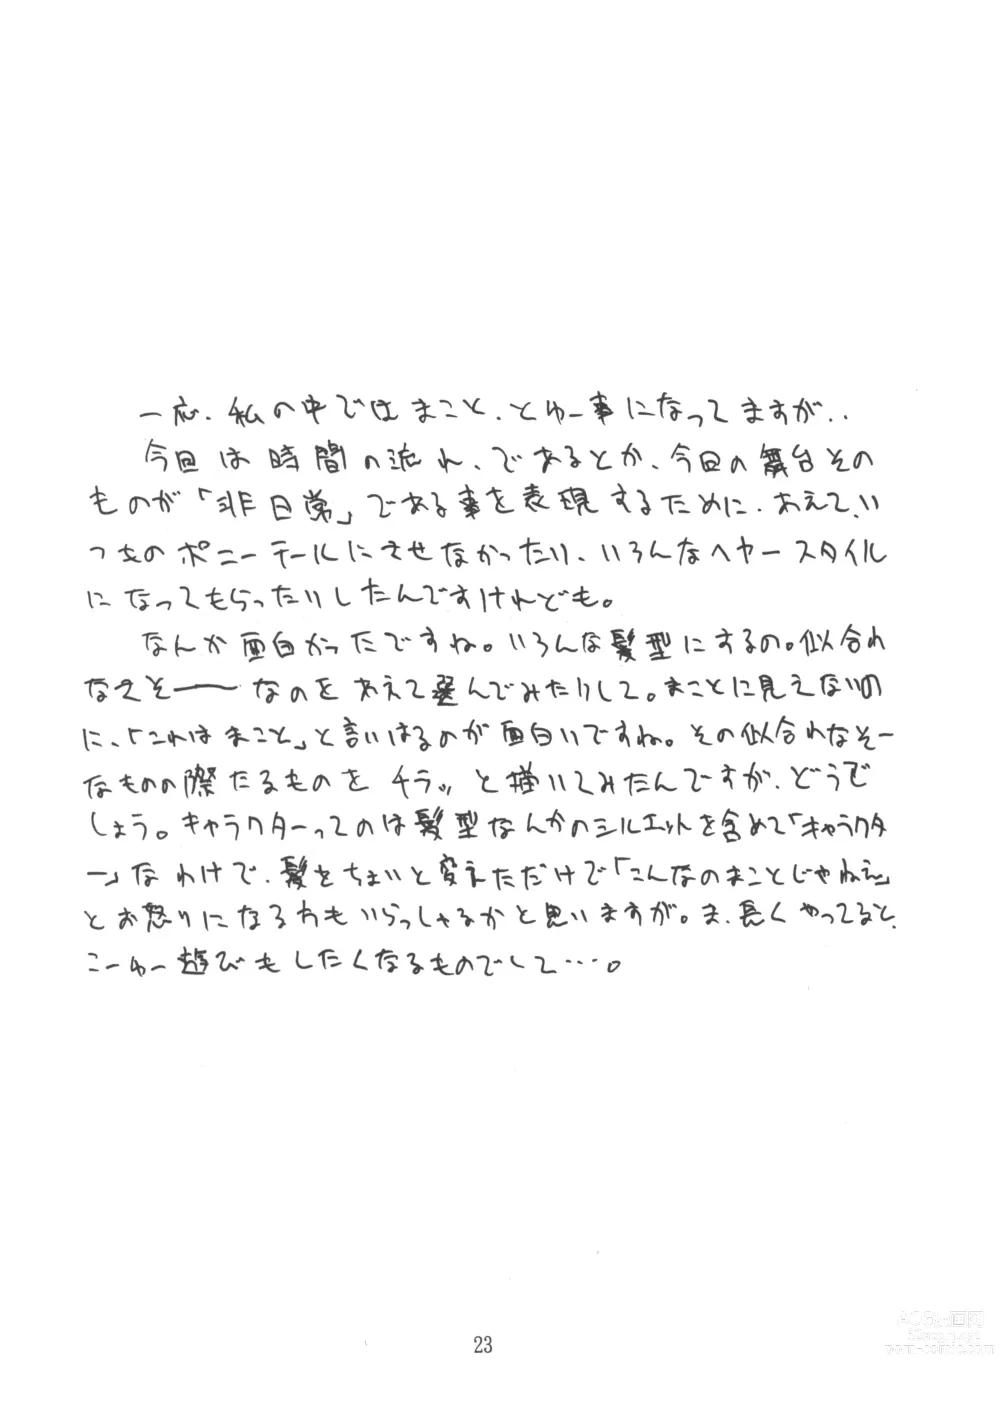 一応、私の中ではまこと、とゆー事になってますが、、
今回は時間の流れ、であるとか、今回の舞台その
ものが「非日常」である事を表現するために、あえて、い
つものポニーテールにさせなかったり、いろんなヘヤースタイル
になってもらったりしたんですけれども。
なんか面白かったですね。いろんな髪型にするの。似合わ
なさそ――なのをあえて選んでみたりして。まことに見えないの
に、「これはまこと」と言いはるのが面白いですね。その似合わなそー
なものの際たるものをチラッと描いてみたんですが、どうで
しょう。キャラクターってのは髪型なんかのシルエットを含めて「キャラクタ
ー」なわけで、髪をちょいと変えただけで「こんなのまことじゃねえ」
とお怒りになる方もいらっしゃるかと思いますが。ま、長くやってると、
こーゆー遊びもしたくなるものでして…。
23